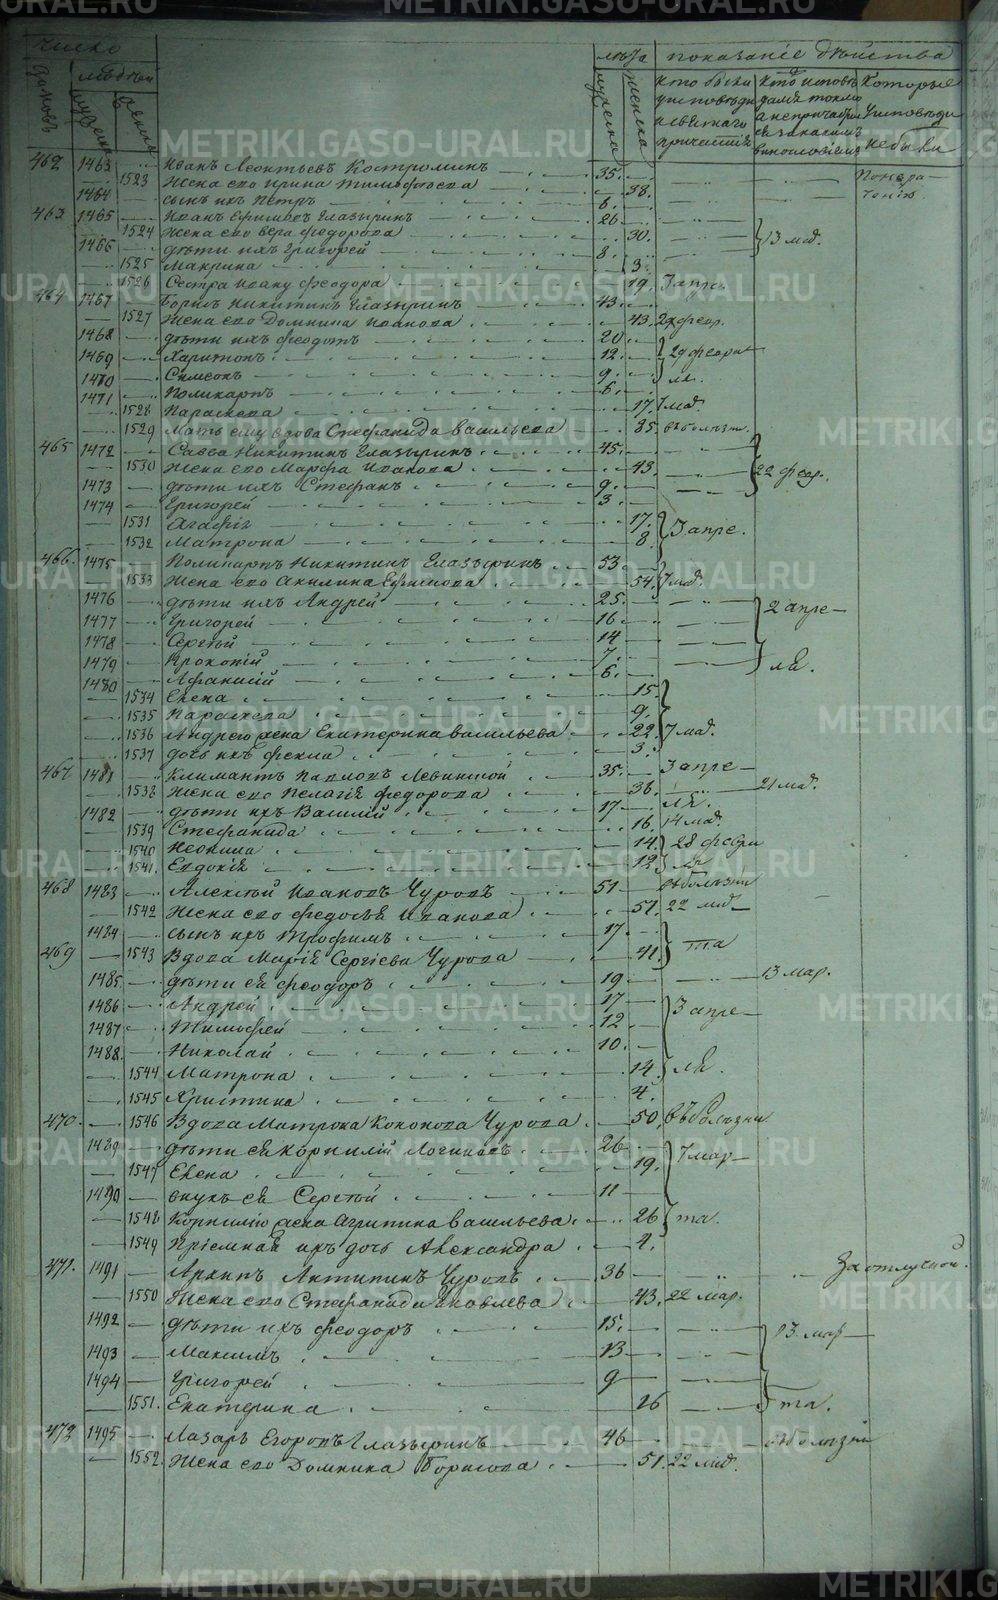 METRIKI.GASO-URAL.RU
число
лѣта показаніе дѣйства
домовъ людей
мужска женска мужеска женска
Кто были у исповѣди и святаго причастія
Которые исповѣди не были
462 1463 Иванъ Леонтьевъ Костроминъ 35.
1523 Жена его Ирина Тимофѣева 38.
1464 сынъ ихъ Петръ 6.
463 1465 Иванъ Ефимовъ Глазыринъ 26
1524 Жена его Вера Федорова 30. 13 мар.
1466 дѣти ихъ Григорей 8.
1525 Макрина 3.
1526 Сестра Ивану Феодора 19. 3 апре.
464 1467 Борисъ Никитинъ Глазыринъ 43
1527 Жена его Домнина Иванова 43. 29 февр.
1468 дѣти ихъ Феодотъ 20
1469 Харитонъ 12. 29 февра
1470 Симеонъ 9. ля.
1471 Поликарпъ 6.
1528 Параскева 17. 7 мар.
1529 Мать ему вдова Стефанида Васильева 85. въ болѣзн.
465 1472 Савва Никитинъ Глазыринъ 45.
1530 Жена его Марфа Иванова 43. 22 фев.
1473 дѣти ихъ Стефанъ 9.
1474 Григорей 3.
1531 Агафія 17. 3 апре.
1532 Матрона 8.
466. 1475 Поликарпъ Никитинъ Глазыринъ 53
1533 Жена его Акилина Ефимова 54. 7 мар.
1476 дѣти ихъ Андрей 25. 2 апре
1477 Григорей 16
1478 Сергѣй 14
1479 Прокопій 7. ля.
1480 Афанасій 6.
1534 Елена 15
1535 Параскева 9.
1536 Андрею жена Екатерина Васильева 22 7 мар.
1537 дочь ихъ Фекла 3.
467 1481 Климантъ Павловъ Левинской 35. 3 апре
1538 Жена его Пелагія Федорова 36. ля. 21 мар.
1482 дѣти ихъ Василій 17
1539 Стефанида 16. 14 мар.
1540 Неонила 14. 28 февра
1541. Евдокія 12 ля
468 1483 Алексѣй Ивановъ Чуровъ 51 въ болѣзни
1542 Жена его Федосья Иванова 51. 22 мар
1484 сынъ ихъ Трофимъ 17. та
469 1543 Вдова Марія Сергіева Чурова 41.
1485. дѣти ея Феодоръ 19 13 мар.
1486 Андрей 17 3 апре
1487 Тимофей 12
1488. Николай 10.
1544 Матрона 14. ля.
1545 Христина 4.
470. 1546 Вдова Матрона Кононова Чурова 50. въ болѣзни
1489 дѣти ея Корнилій Логиновъ 26 7 мар
1547 Елена 19.
1490 внукъ ея Сергѣй 11
1548 Корнилію жена Агрипина Васильева 26 та.
1549 Пріемная ихъ дочь Александра 4.
471. 1491 Архипъ Антипинъ Чуровъ 36 За отлучкой.
1550 Жена его Стефанида Яковлева 43. 22 мар.
1492 дѣти ихъ Феодоръ 15. 13 мар
1493 Максимъ 13
1494 Григорей 9
1551. Екатерина 26 та.
472 1495 Лазарь Егоровъ Глазыринъ 46 въ болѣзни
1552. Жена его Домника Борисова 51. 22 мар.